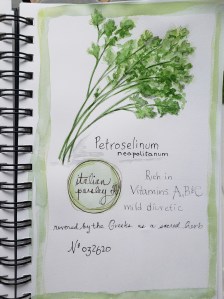 Petroselinum
neapolitanum
italian
parsley
Rich in
Vitamins A, B, C
mild diuretic
revered by the Greeks as a sacred herb
No 032620